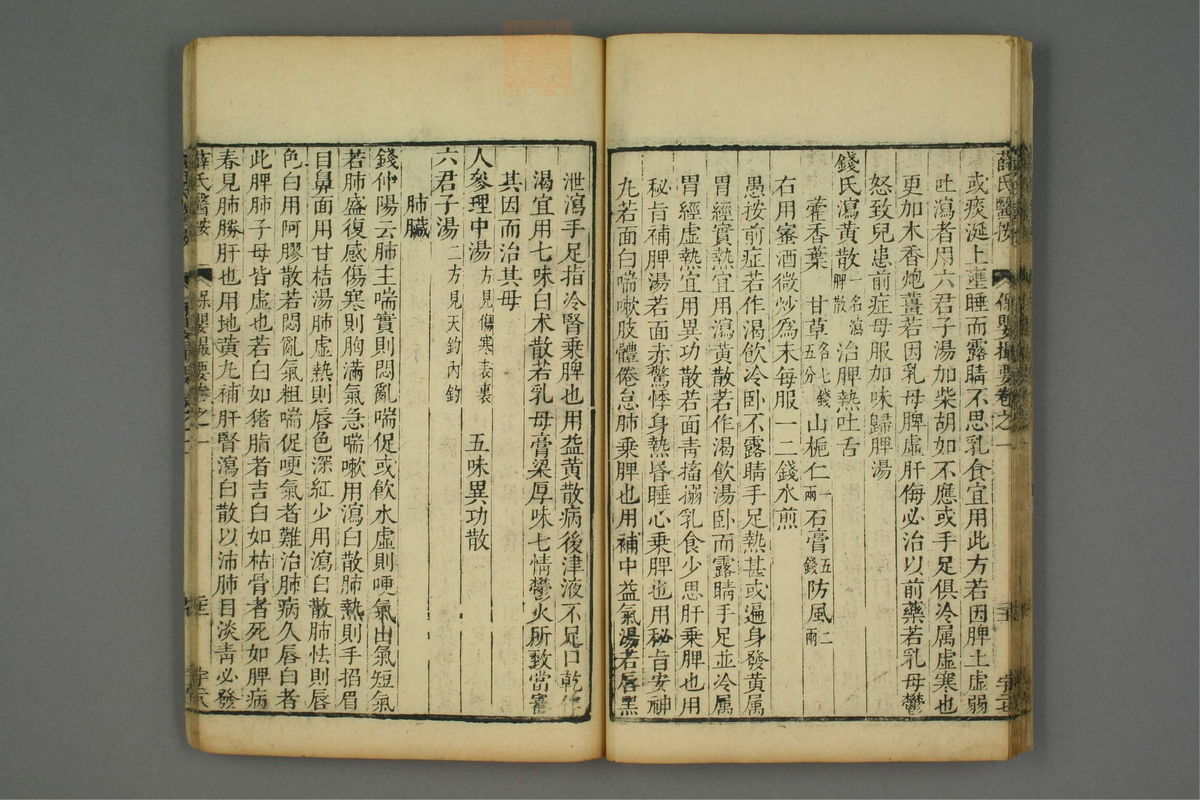 薛氏醫按 保嬰撮要卷之一
或痰涎上壅睡而露睛不思乳食宜用此方若因脾土虛弱
吐瀉者用六君子湯加柴胡如不應或手足俱冷属虛寒也
更加木香炮薑若因乳母脾虛肝侮必治以前藥若乳母鬱
怒致兒患前症母服加味歸脾湯
錢氏瀉黃散一名瀉脾散 治脾熱吐舌
藿香葉 甘草各七錢五分 山梔仁一兩 石膏五錢 防風二兩
右用蜜酒微炒爲末每服一二錢水煎
愚按前症若作渴飲冷卧不露睛手足熱甚或遍身發黃属
胃經實熱宜用瀉黃散若作渴飲湯卧而露睛手足並冷属
胃經虛熱宜用異功散若面青搐搦乳食少思肝乘脾也用
秘旨補脾湯若面赤驚悸身熱昏睡心乘脾也用秘旨安神
九若面白喘嗽肢體倦怠肺乘脾也用補中益氣湯若唇黑
泄瀉手足指冷腎乘脾也用益黃散病後津液不足口乾作
渴宜用七味白术散若乳母膏梁厚味七情鬱火所致當審
其因而治其母
人參理中湯方見傷寒表裏 五味異功散
六君子湯二方見天釣內釣
肺臟
錢仲陽云肺主喘實則悶亂喘促或飲水虛則哽氣出氣短氣
若肺盛復感傷寒則胸滿氣急喘嗽用瀉白散肺熱則手掐眉
目鼻面用甘桔湯肺虛熱則唇色深紅少用瀉白散肺怯則唇
色白用阿膠散若悶亂氣粗喘促哽氣者難治肺病久唇白者
此脾肺子母皆虛也若白如猪脂者吉白如枯骨者死如脾病
春見肺勝肝也用地黃九補肝腎瀉白散以沛肺目淡青必發
薛氏醫按 保嬰撮要卷之一